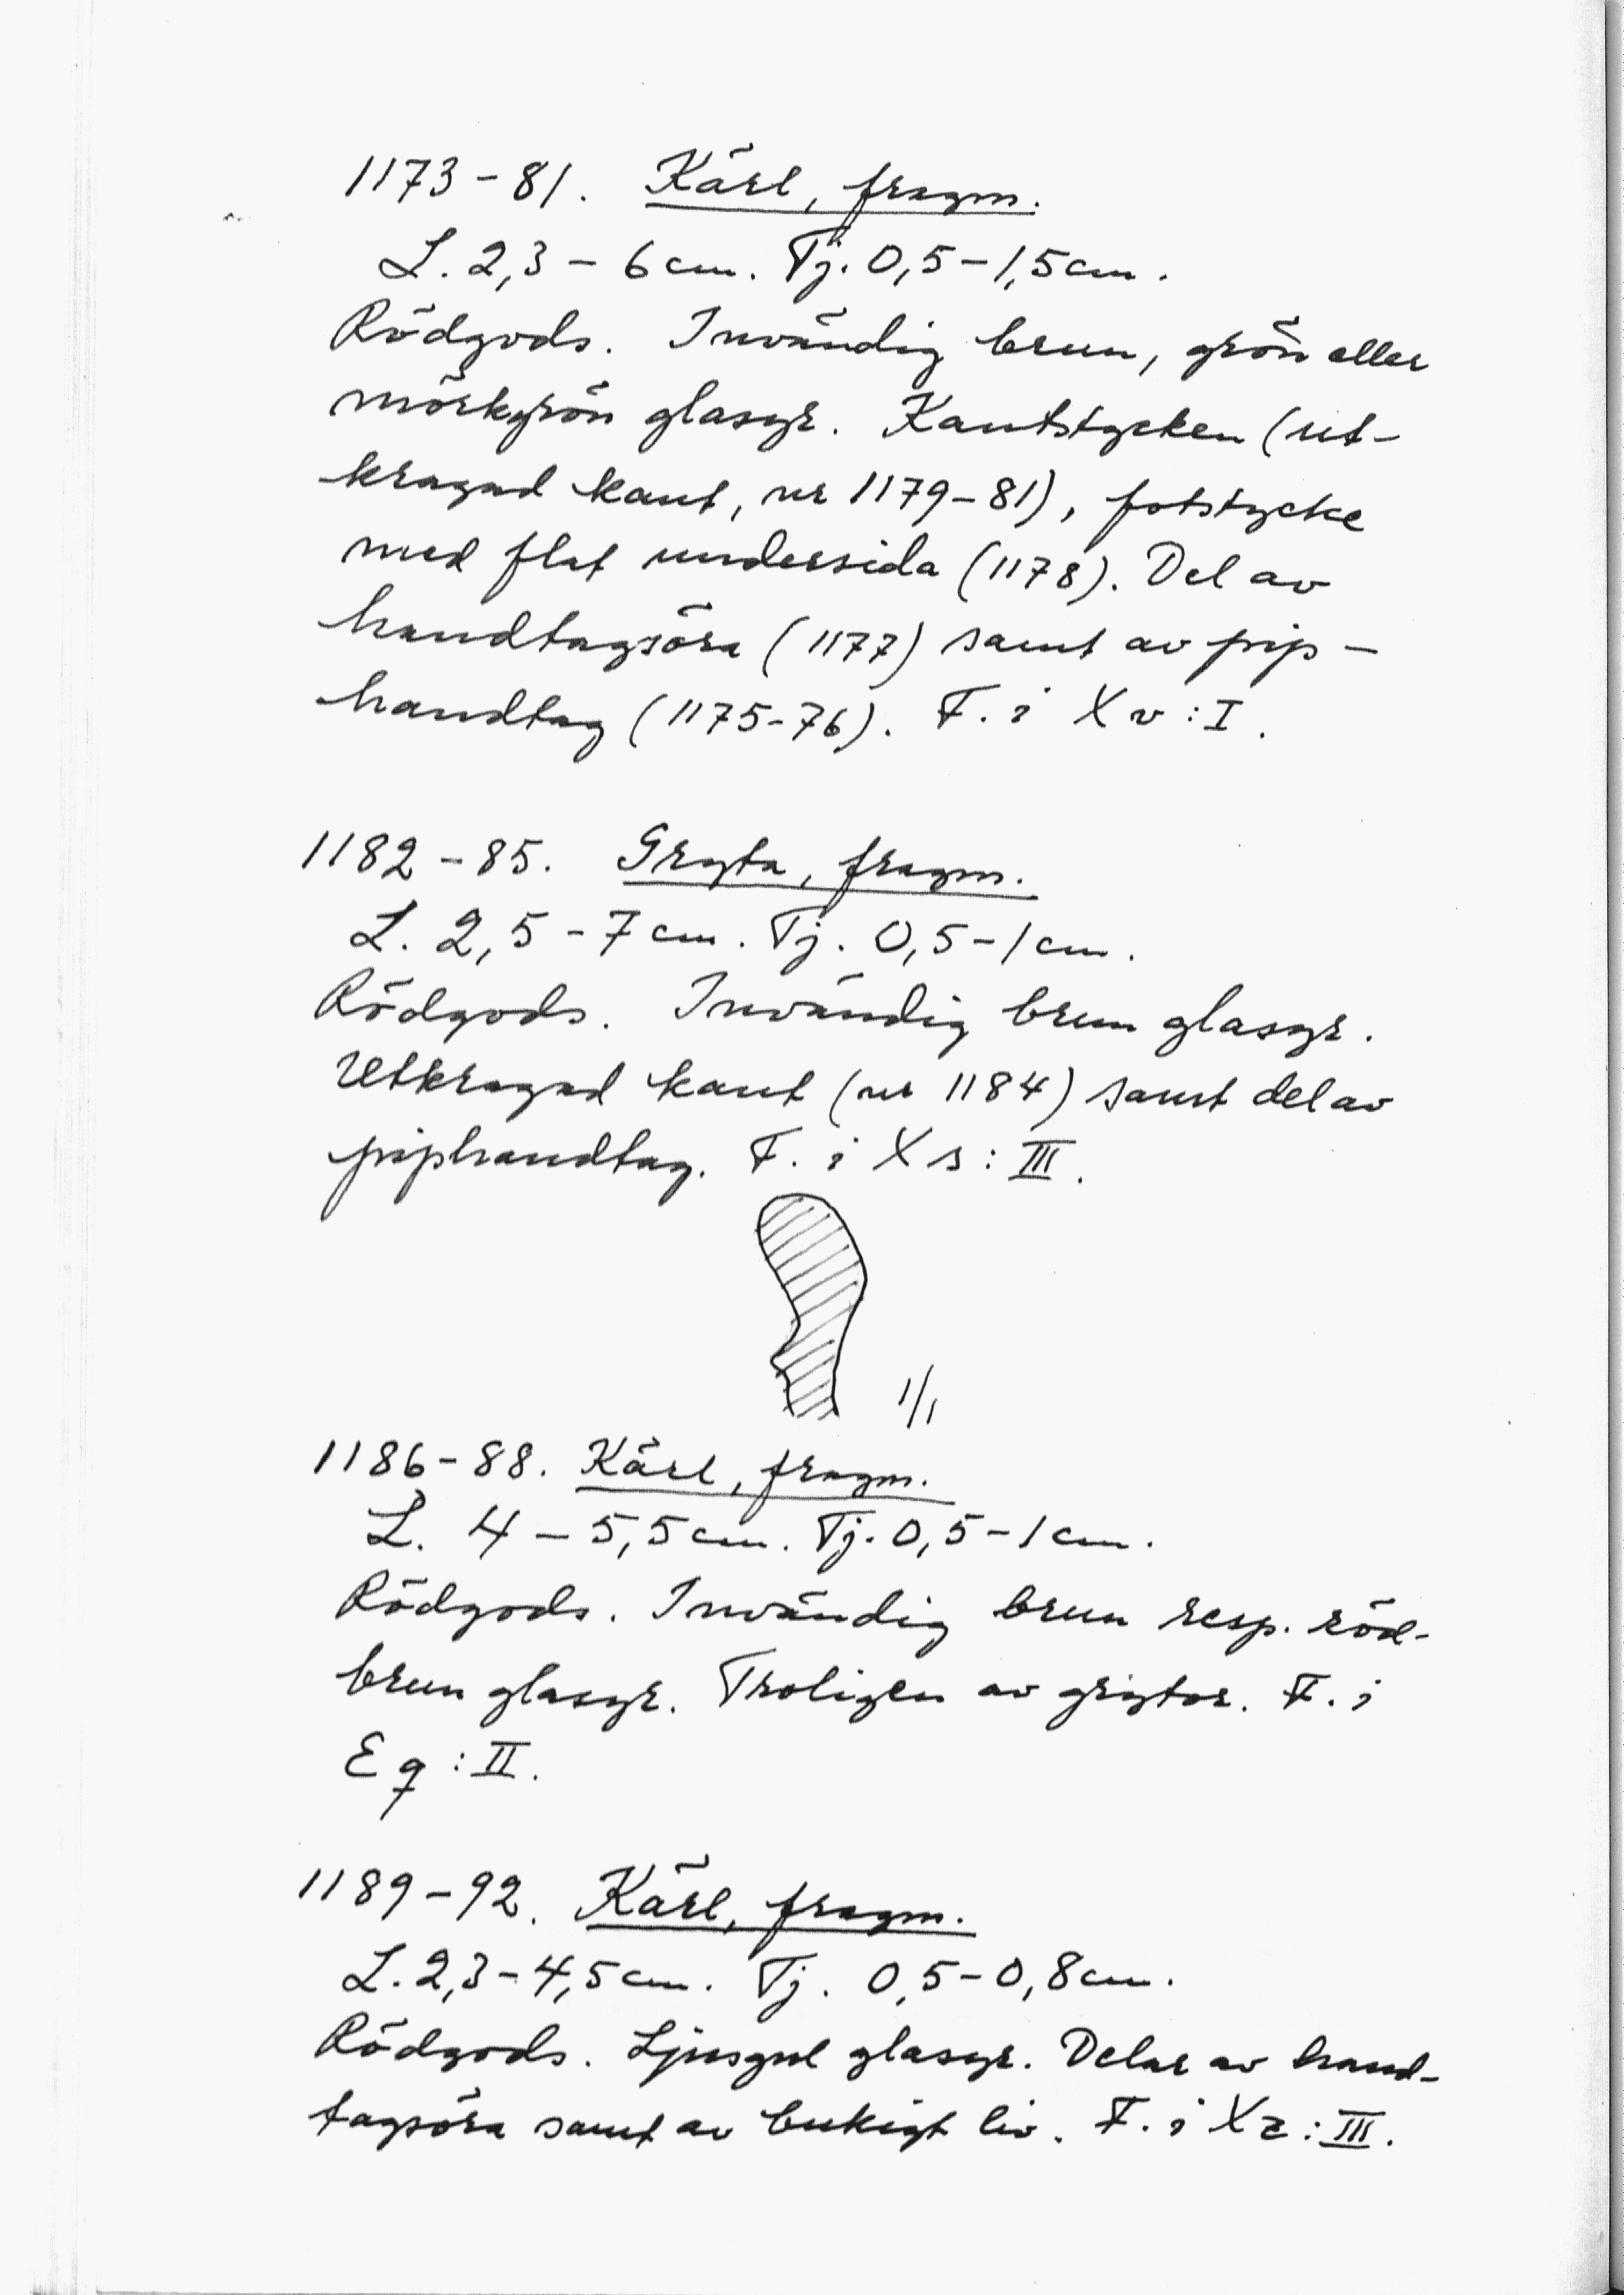 1173-81. Kärl, fragm.
L. 2,3 - 6 cm. Tj. 0,5-1,5 cm.
Rödgods. Invändig brun, grön eller
mörkgrön glasyr. Kantstycken (ut-
kragad kant, nr 1179-81), fotstycke
med flat undersida (1178). Del av
handtagsöra (1177) samt av pip-
handtag (1175-76). F. i X v : I.
1182-85. Gryta, fragm.
L. 2,5 - 7 cm. Tj. 0,5-1 cm.
Rödgods. Invändig brun glasyr.
Utkragad kant (nr 1184) samt del av
piphandtag. F. i X s : III.
1/1
1186-88. Kärl, fragm.
L. 4 - 5,5 cm. Tj. 0,5-1 cm.
Rödgods. Invändig brun resp. röd-
brun glasyr. Troligen av grytor. F. i
E q : II.
1189-92. Kärl, fragm.
L. 2,3-4,5 cm. Tj. 0,5-0,8 cm.
Rödgods. Ljusgul glasyr. Delar av hand-
tagsöra samt av bukigt liv. F. i X z : III.